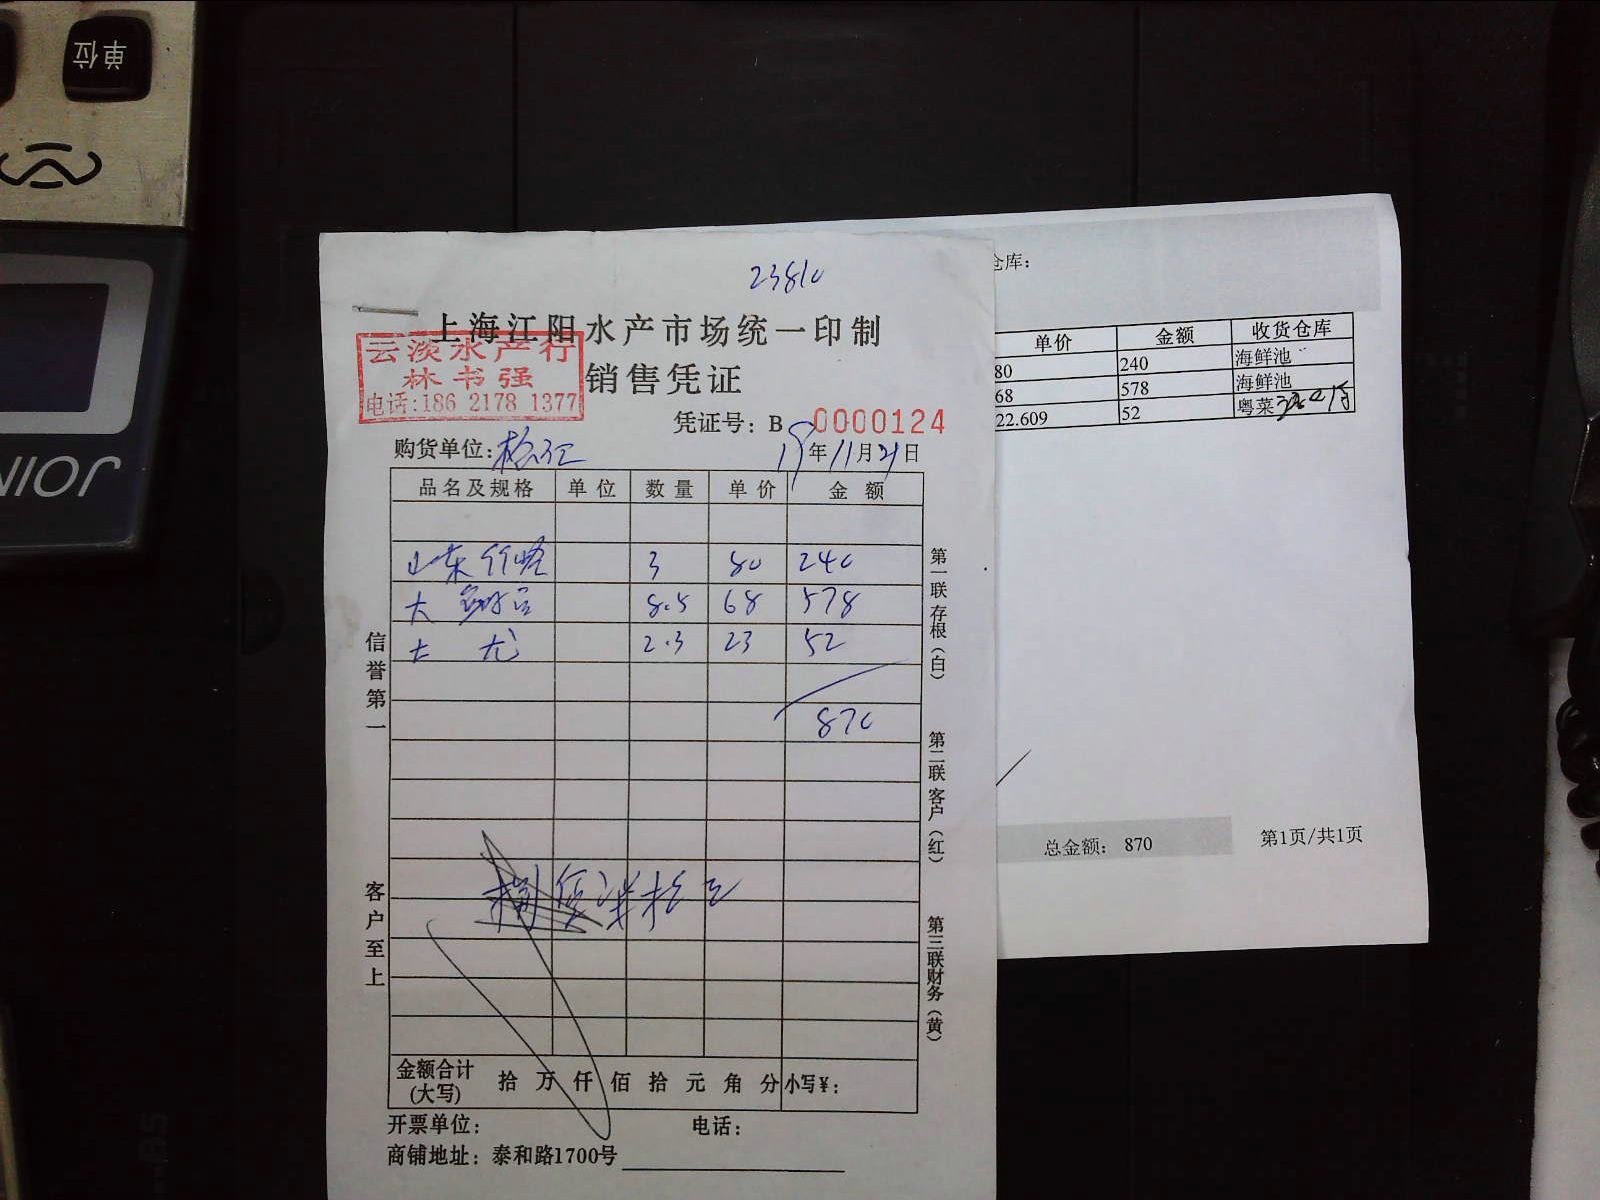 单位
JOINI
23810
上海江阳水产市场统一印制
云淡水产行
林书强
电话:186 2178 1377
销售凭证
凭证号: B 0000124
购货单位: 松江
19年11月21日
品名及规格 单位 数量 单价 金额
山东竹蛏 3 80 240
大 8.5 68 578
大 2.3 23 52
870
信誉第一
客户至上
第一联存根(白)
第二联客户(红)
第三联财务(黄)
金额合计(大写) 拾 万 仟 佰 拾 元 角 分 小写¥:
开票单位: 电话:
商铺地址: 泰和路1700号
仓库:
单价 金额 收货仓库
80 240 海鲜池
68 578 海鲜池
22.609 52 粤菜
总金额: 870 第1页/共1页